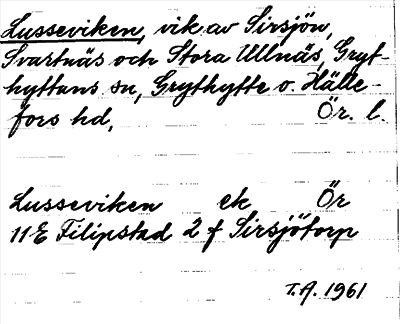 Lusseviken, vik av Sirsjön,
Svartnäs och Stora Ullnäs, Gryt-
hyttans sn, Grythytte o. Hälle-
fors hd, Ör. l.
Lusseviken ek Ör
11E Filipstad 2 f Sirsjötorp
T.A. 1961